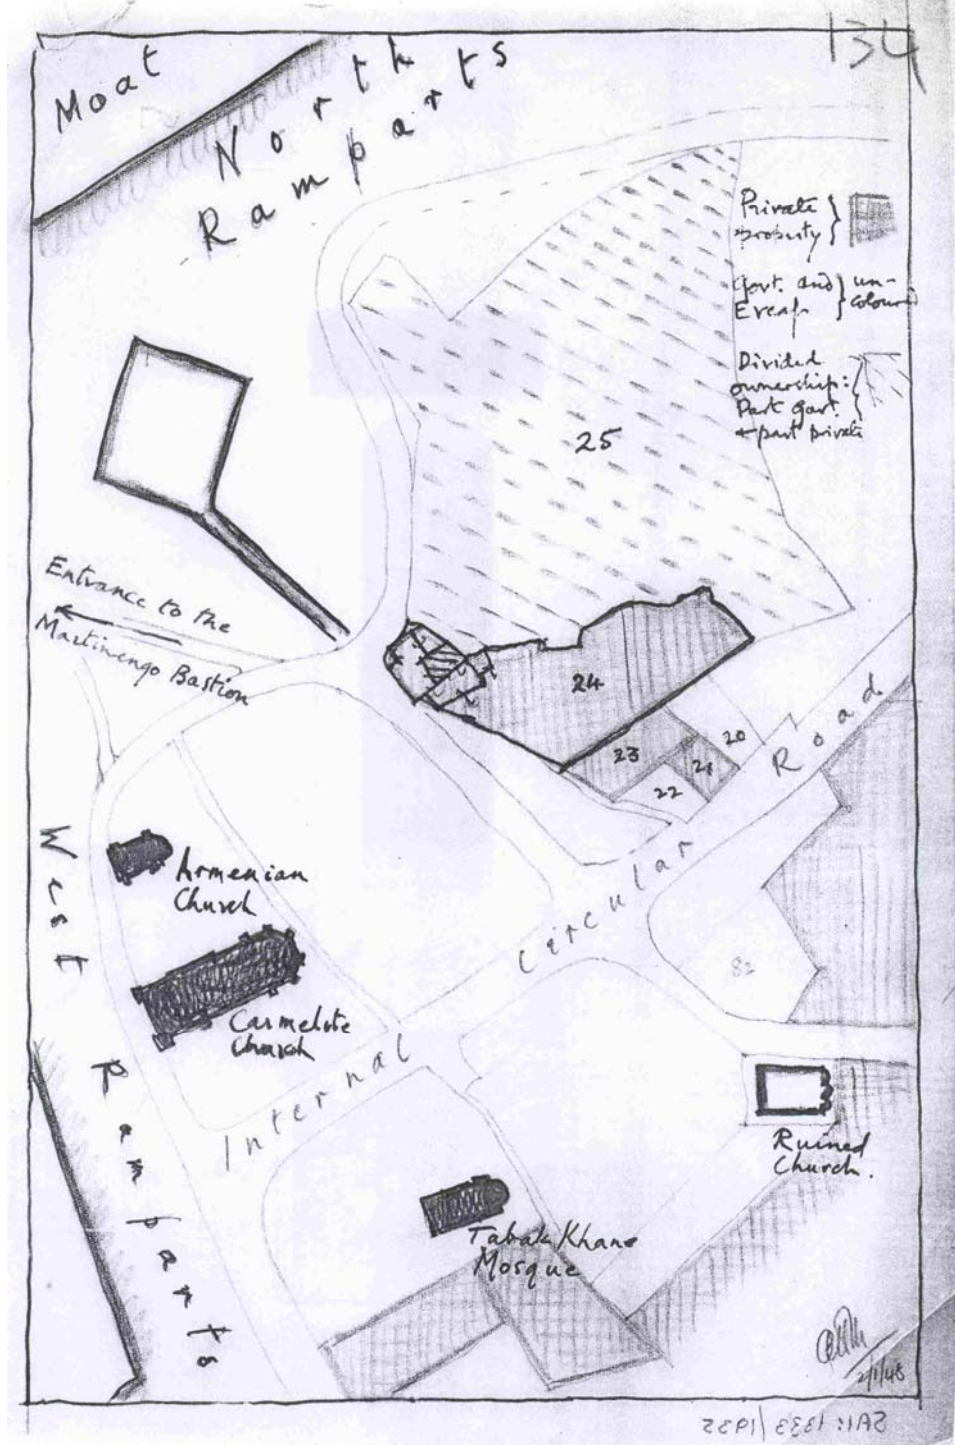 134
Moat
North
Ramparts
Private
property
Govt. and
Evcaf.
un-
coloured
Divided
ownership:
Part Govt.
+ part private
25
Entrance to the
Martinengo Bastion
24
23
20
21
22
Internal Circular Road
West Ramparts
Armenian
Church
Carmelite
Church
82
Ruined
Church.
Tabak Khane
Mosque
2/1/48
SA1: 1333/1932